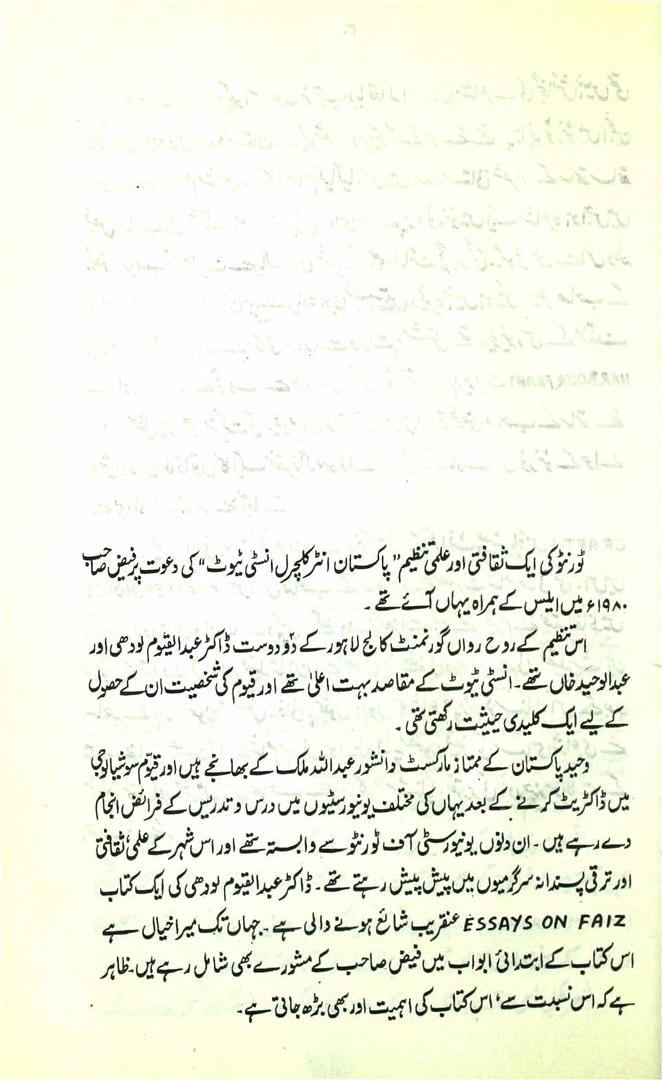 ٹورنٹو کی ایک ثقافتی اور علمی تنظیم "پاکستان انٹر کلچرل انسٹی ٹیوٹ" کی دعوت پر فیض صاحب
۱۹۸۰ء میں ایلس کے ہمراہ یہاں آئے تھے۔
اس تنظیم کے روح رواں گورنمنٹ کالج لاہور کے دو دوست ڈاکٹر عبدالقیوم لودھی اور
عبدالوحید خاں تھے۔ انسٹی ٹیوٹ کے مقاصد بہت اعلیٰ تھے اور قیوم کی شخصیت ان کے حصول
کے لیے ایک کلیدی حیثیت رکھتی تھی۔
وحید پاکستان کے ممتاز مارکسٹ دانشور عبداللہ ملک کے بھانجے ہیں اور قیوّم سوشیالوجی
میں ڈاکٹریٹ کرنے کے بعد یہاں کی مختلف یونیورسٹیوں میں درس و تدریس کے فرائض انجام
دے رہے ہیں۔ ان دلوں یونیورسٹی آف ٹورنٹو سے وابستہ تھے اور اس شہر کے علمی، ثقافتی
اور ترقی پسندانہ سرگرمیوں میں پیش پیش رہتے تھے۔ ڈاکٹر عبدالقیوم لودھی کی ایک کتاب
ESSAYS ON FAIZ عنقریب شائع ہونے والی ہے۔ جہاں تک میرا خیال ہے
اس کتاب کے ابتدائی ابواب میں فیض صاحب کے مشورے بھی شامل رہے ہیں۔ ظاہر
ہے کہ اس نسبت سے، اس کتاب کی اہمیت اور بھی بڑھ جاتی ہے۔